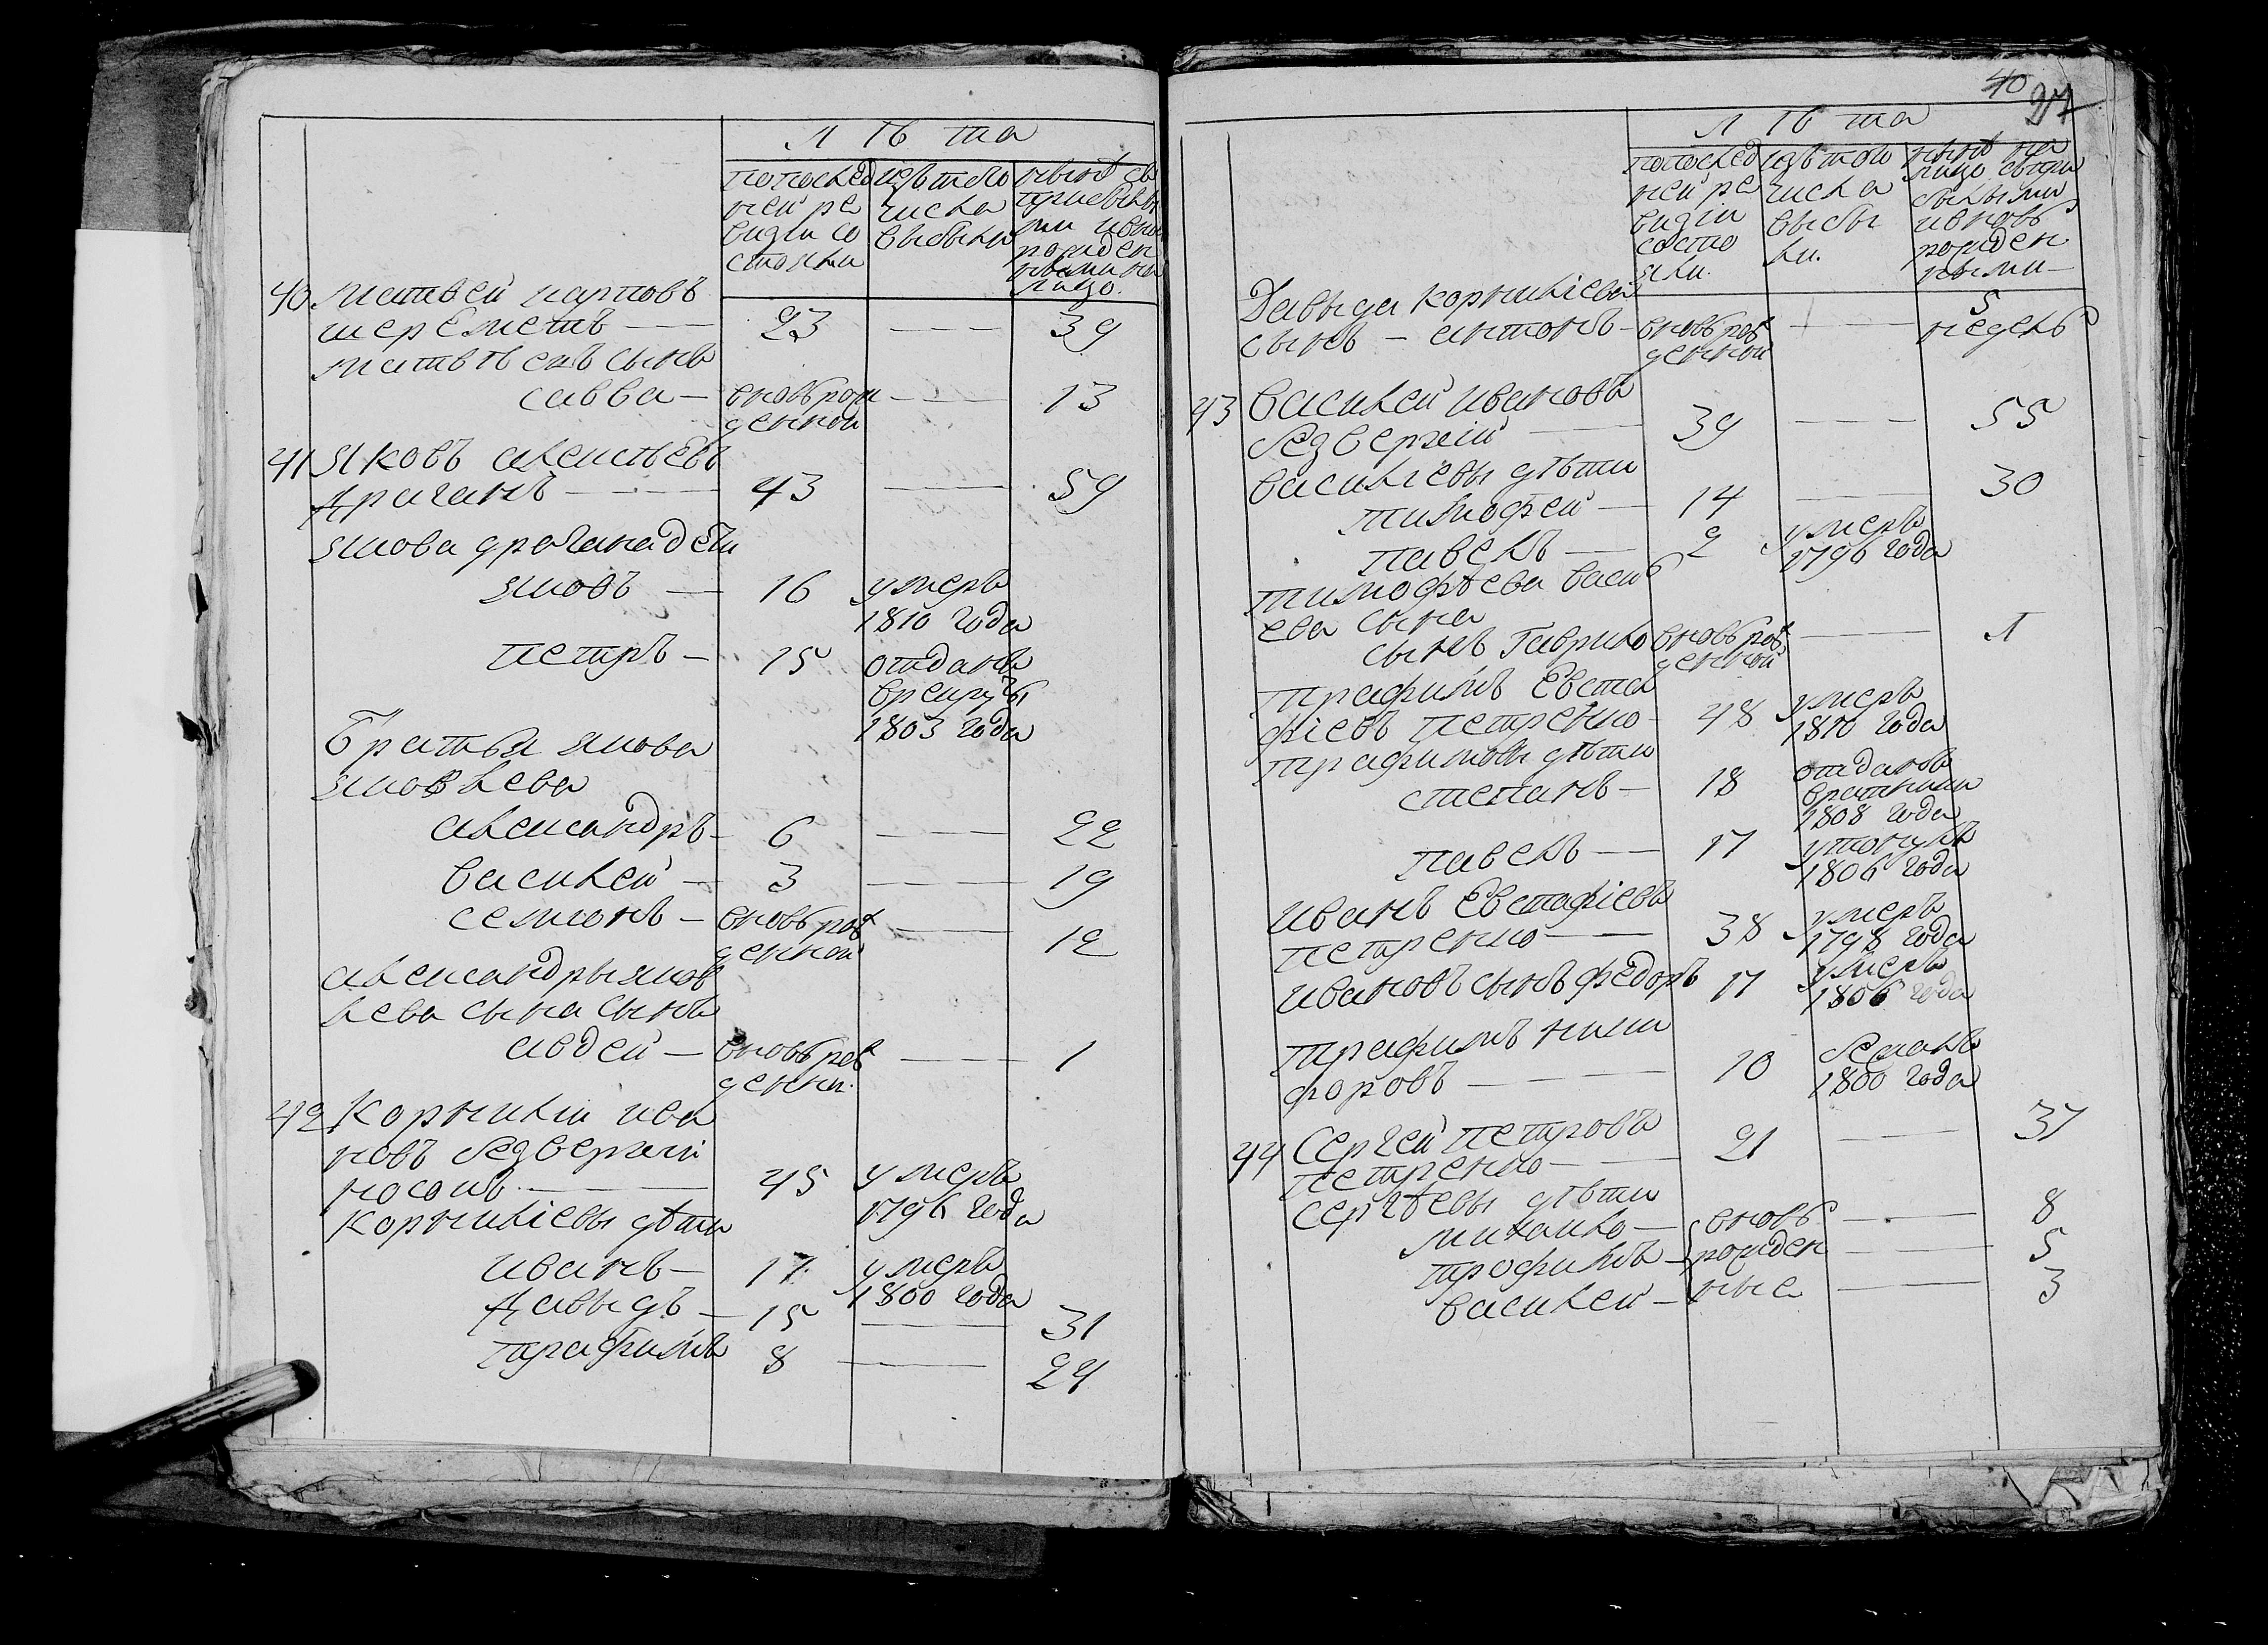 Лѣта
попослед
ней ре
визіи со
стояли
изътого
числа
выбыли
нынѣ съ
прибылы
ми ивно
рожден
ными на
лицо.
40 Матвей карповъ
шереметъ — 23 — — — 39
матвѣевъ сынъ
савва — вновь рож — — 13
денной
41 Яковъ алексѣевъ
драганъ — — — 43 — 59
якова драгана дети
яковъ — 16 умеръ
1810 года
петръ — 15 отданъ
врекруты
1803 года
Братья якова
яковлева
александръ — 6 — — 22
василей — 3 — — 19
семионъ — вновь рож — — 12
денной
александры яков
лева сына сынъ
авдей — вновь рож — — 1
денны.
42 Корнилій ива
новъ безверхій
носокъ — 45 умеръ
1796 года
Корниліевы дѣти
иванъ — 17 умеръ
1800 года
давыдъ — 15 — 31
трафимъ 8 — 24
40
27
Лѣта
попослед
ней ре
визіи
состо
яли.
изътого
числа
выбы
ли.
нынѣ на
лицо съпри
былыми
ивновь
рожден
ными —
Давыда корниліева
сынъ — антонъ — вновь рож — — 5
денной недель
43 василей ивановъ
безверхій — 39 — — — 55
васильевы дѣти
тимофей — 14 — — 30
павелъ — 2 умеръ
1796 года
тимофѣева василь
ева сына
сынъ Гаврило вновь рож — — Л
денной
трафимъ Евста
фіевъ петренко — 48 умеръ
1810 года
трафимовы дѣти
степанъ — 18 отданъ
вратники
1808 года
павелъ — 17 утонулъ
1806 года
иванъ Евстафіевъ
петренко — 38 умеръ
1798 года
ивановъ сынъ федоръ 17 умеръ
1806 года
трафимъ ники
форовъ — 10 бежалъ
1800 года
44 Сергей петровъ
петренко — 21 — 37
сергѣевы дѣти
михайло — вновь — 8
трофимъ — рожден — 5
василей — ные — 3